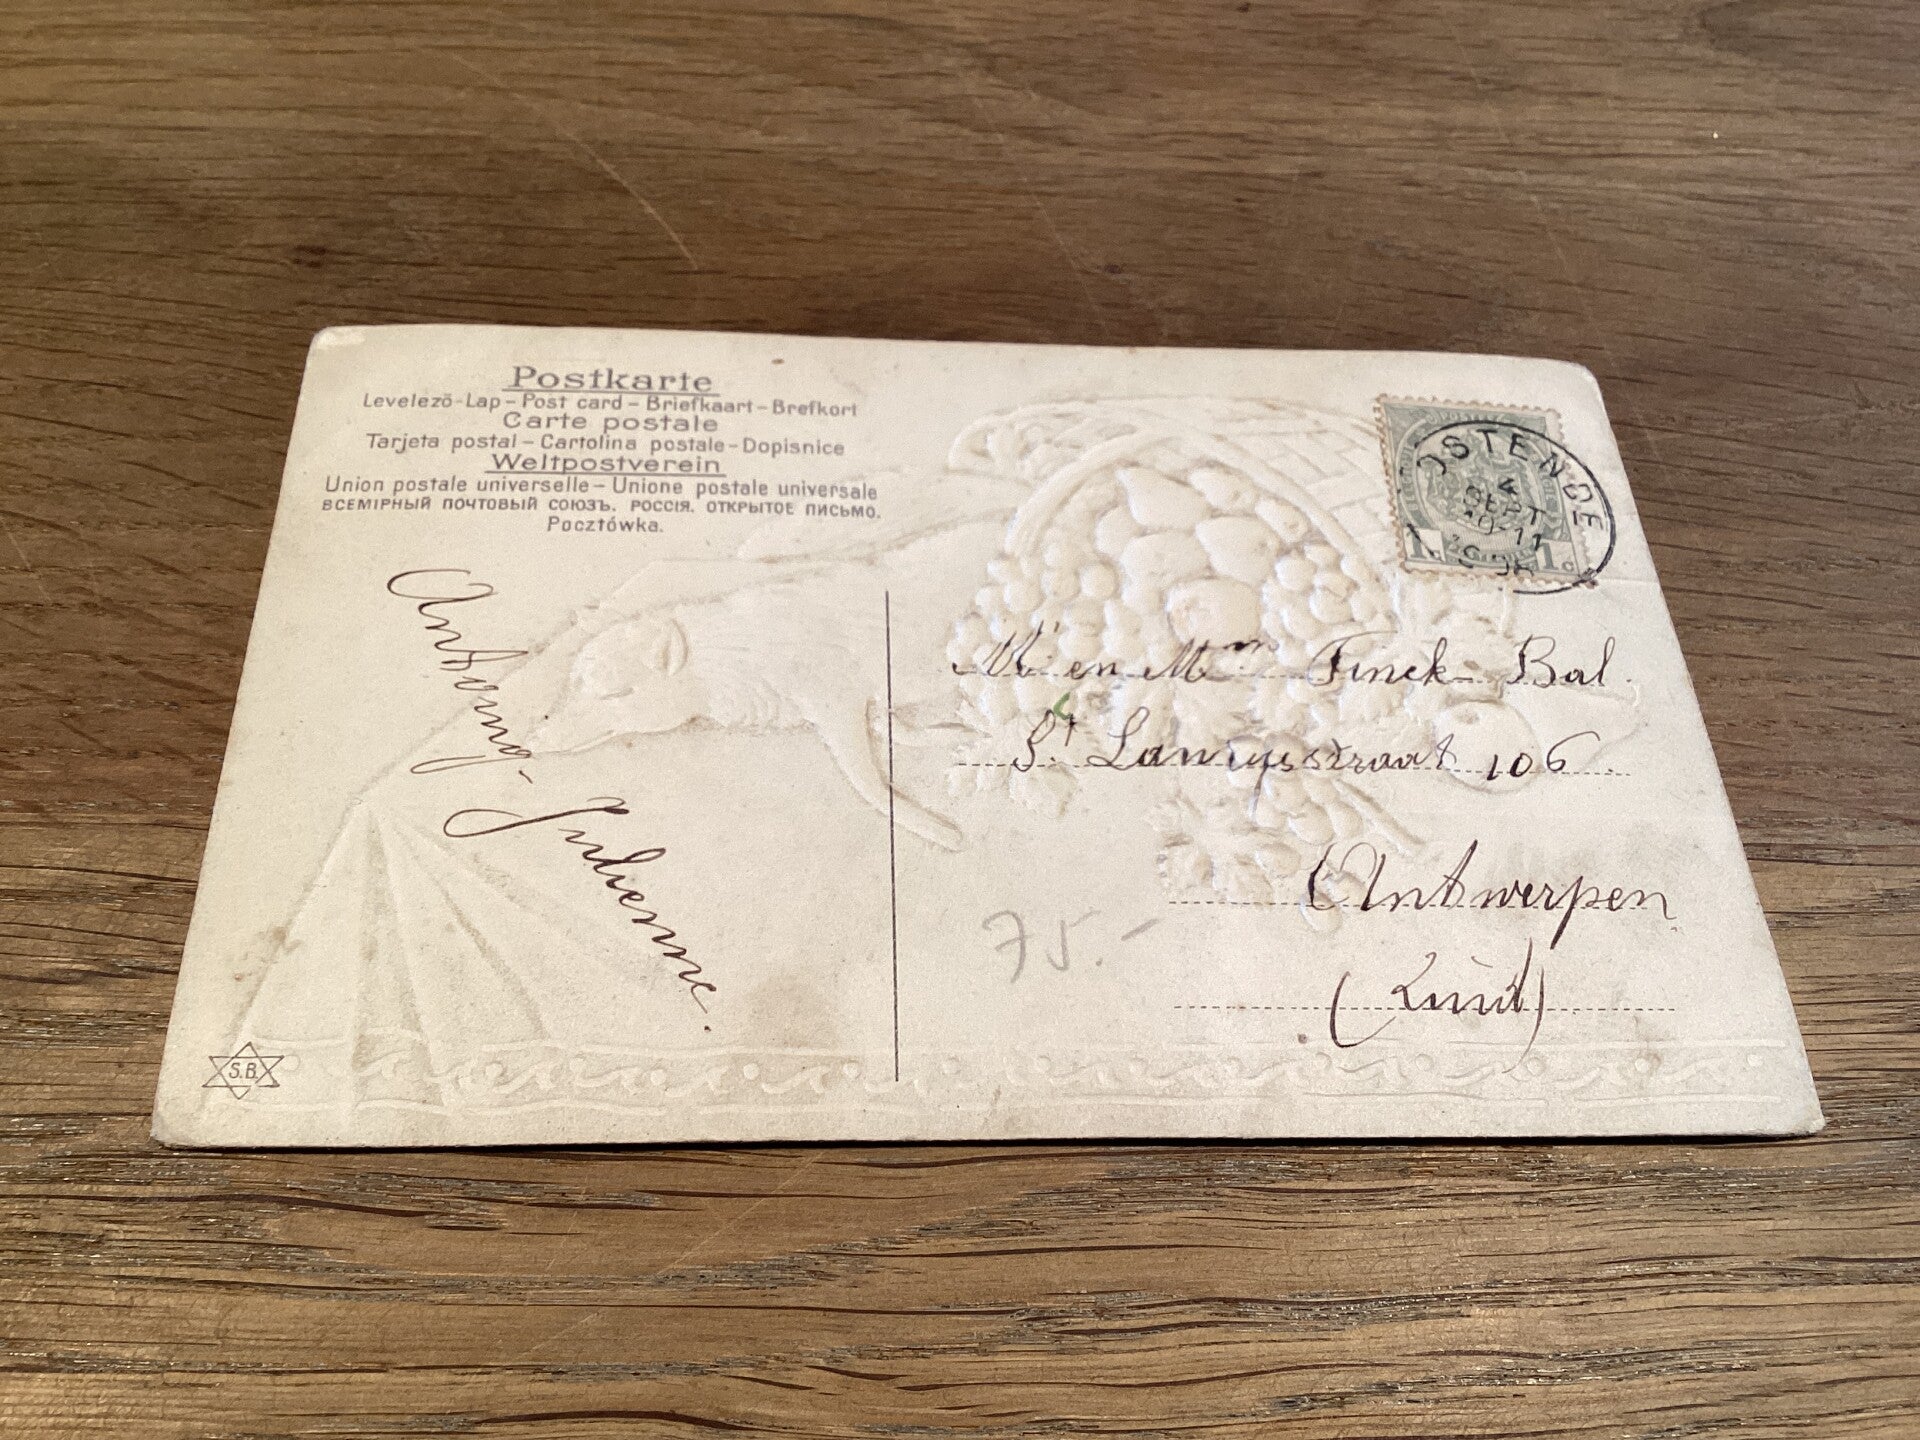 Postkarte
Levelező-Lap – Post card – Briefkaart – Brefkort
Carte postale
Tarjeta postal – Cartolina postale – Dopisnice
Weltpostverein
Union postale universelle – Unione postale universale
ВСЕМІРНЫЙ ПОЧТОВЫЙ СОЮЗЪ. РОССІЯ. ОТКРЫТОЕ ПИСЬМО.
Pocztówka.
OSTENDE
SEPT
10-11
1c
1c
Mr en Mm Finck-Bal.
St. straat 106.
Antwerpen
(Zuid)
75.-
Antony-
Julienne.
S.B.